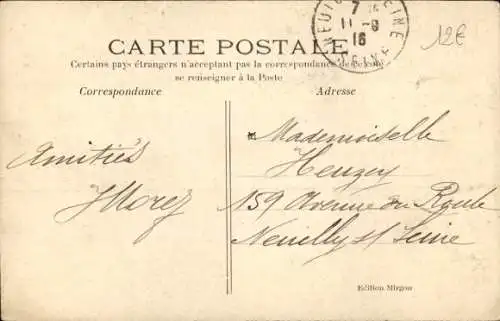 NEUILLY-S-SEINE
7
11-8
16
SEINE
12€
CARTE POSTALE
Certains pays étrangers n'acceptant pas la correspondance de ce côté
se renseigner à la Poste
Correspondance
Adresse
Amitiés
Mademoiselle
Heuzey
159 Avenue du Roule
Neuilly s/ Seine
Edition Mirgon